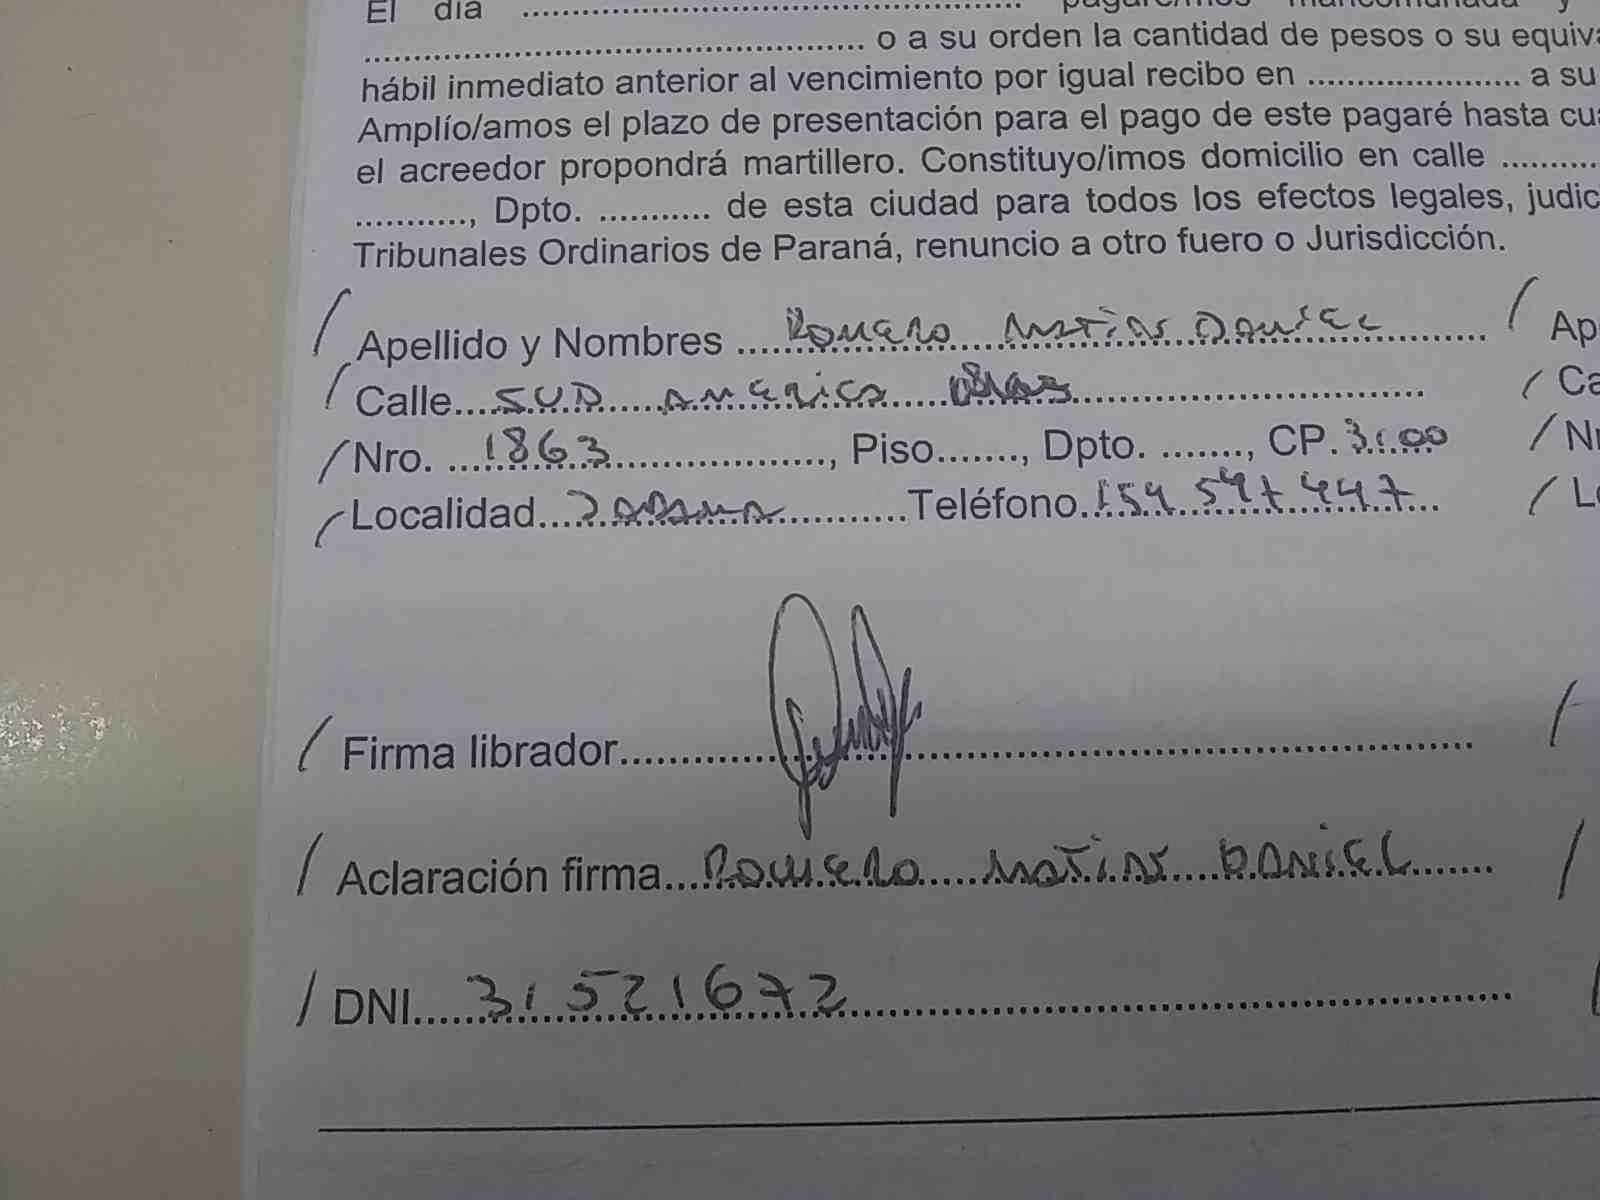 El día ........................ pagaré/mos mancomunada y
........................ o a su orden la cantidad de pesos o su
hábil inmediato anterior al vencimiento por igual recibo en ..................... a su
Amplío/amos el plazo de presentación para el pago de este pagaré hasta
el acreedor propondrá martillero. Constituyo/imos domicilio en calle ..........
..........., Dpto. ........... de esta ciudad para todos los efectos legales,
Tribunales Ordinarios de Paraná, renuncio a otro fuero o Jurisdicción.
/ Apellido y Nombres ... Romero Matias Daniel ........ /
/ Calle.... SUD America ........ /
/ Nro. ... 1863 ..............., Piso......., Dpto. ......., CP. 3100 /
/ Localidad... Parana ...........Teléfono. 154 547447 ... /
/ Firma librador........................ /
/ Aclaración firma... Romero Matias DANiEL ....... /
/ DNI.... 31521672 ........................